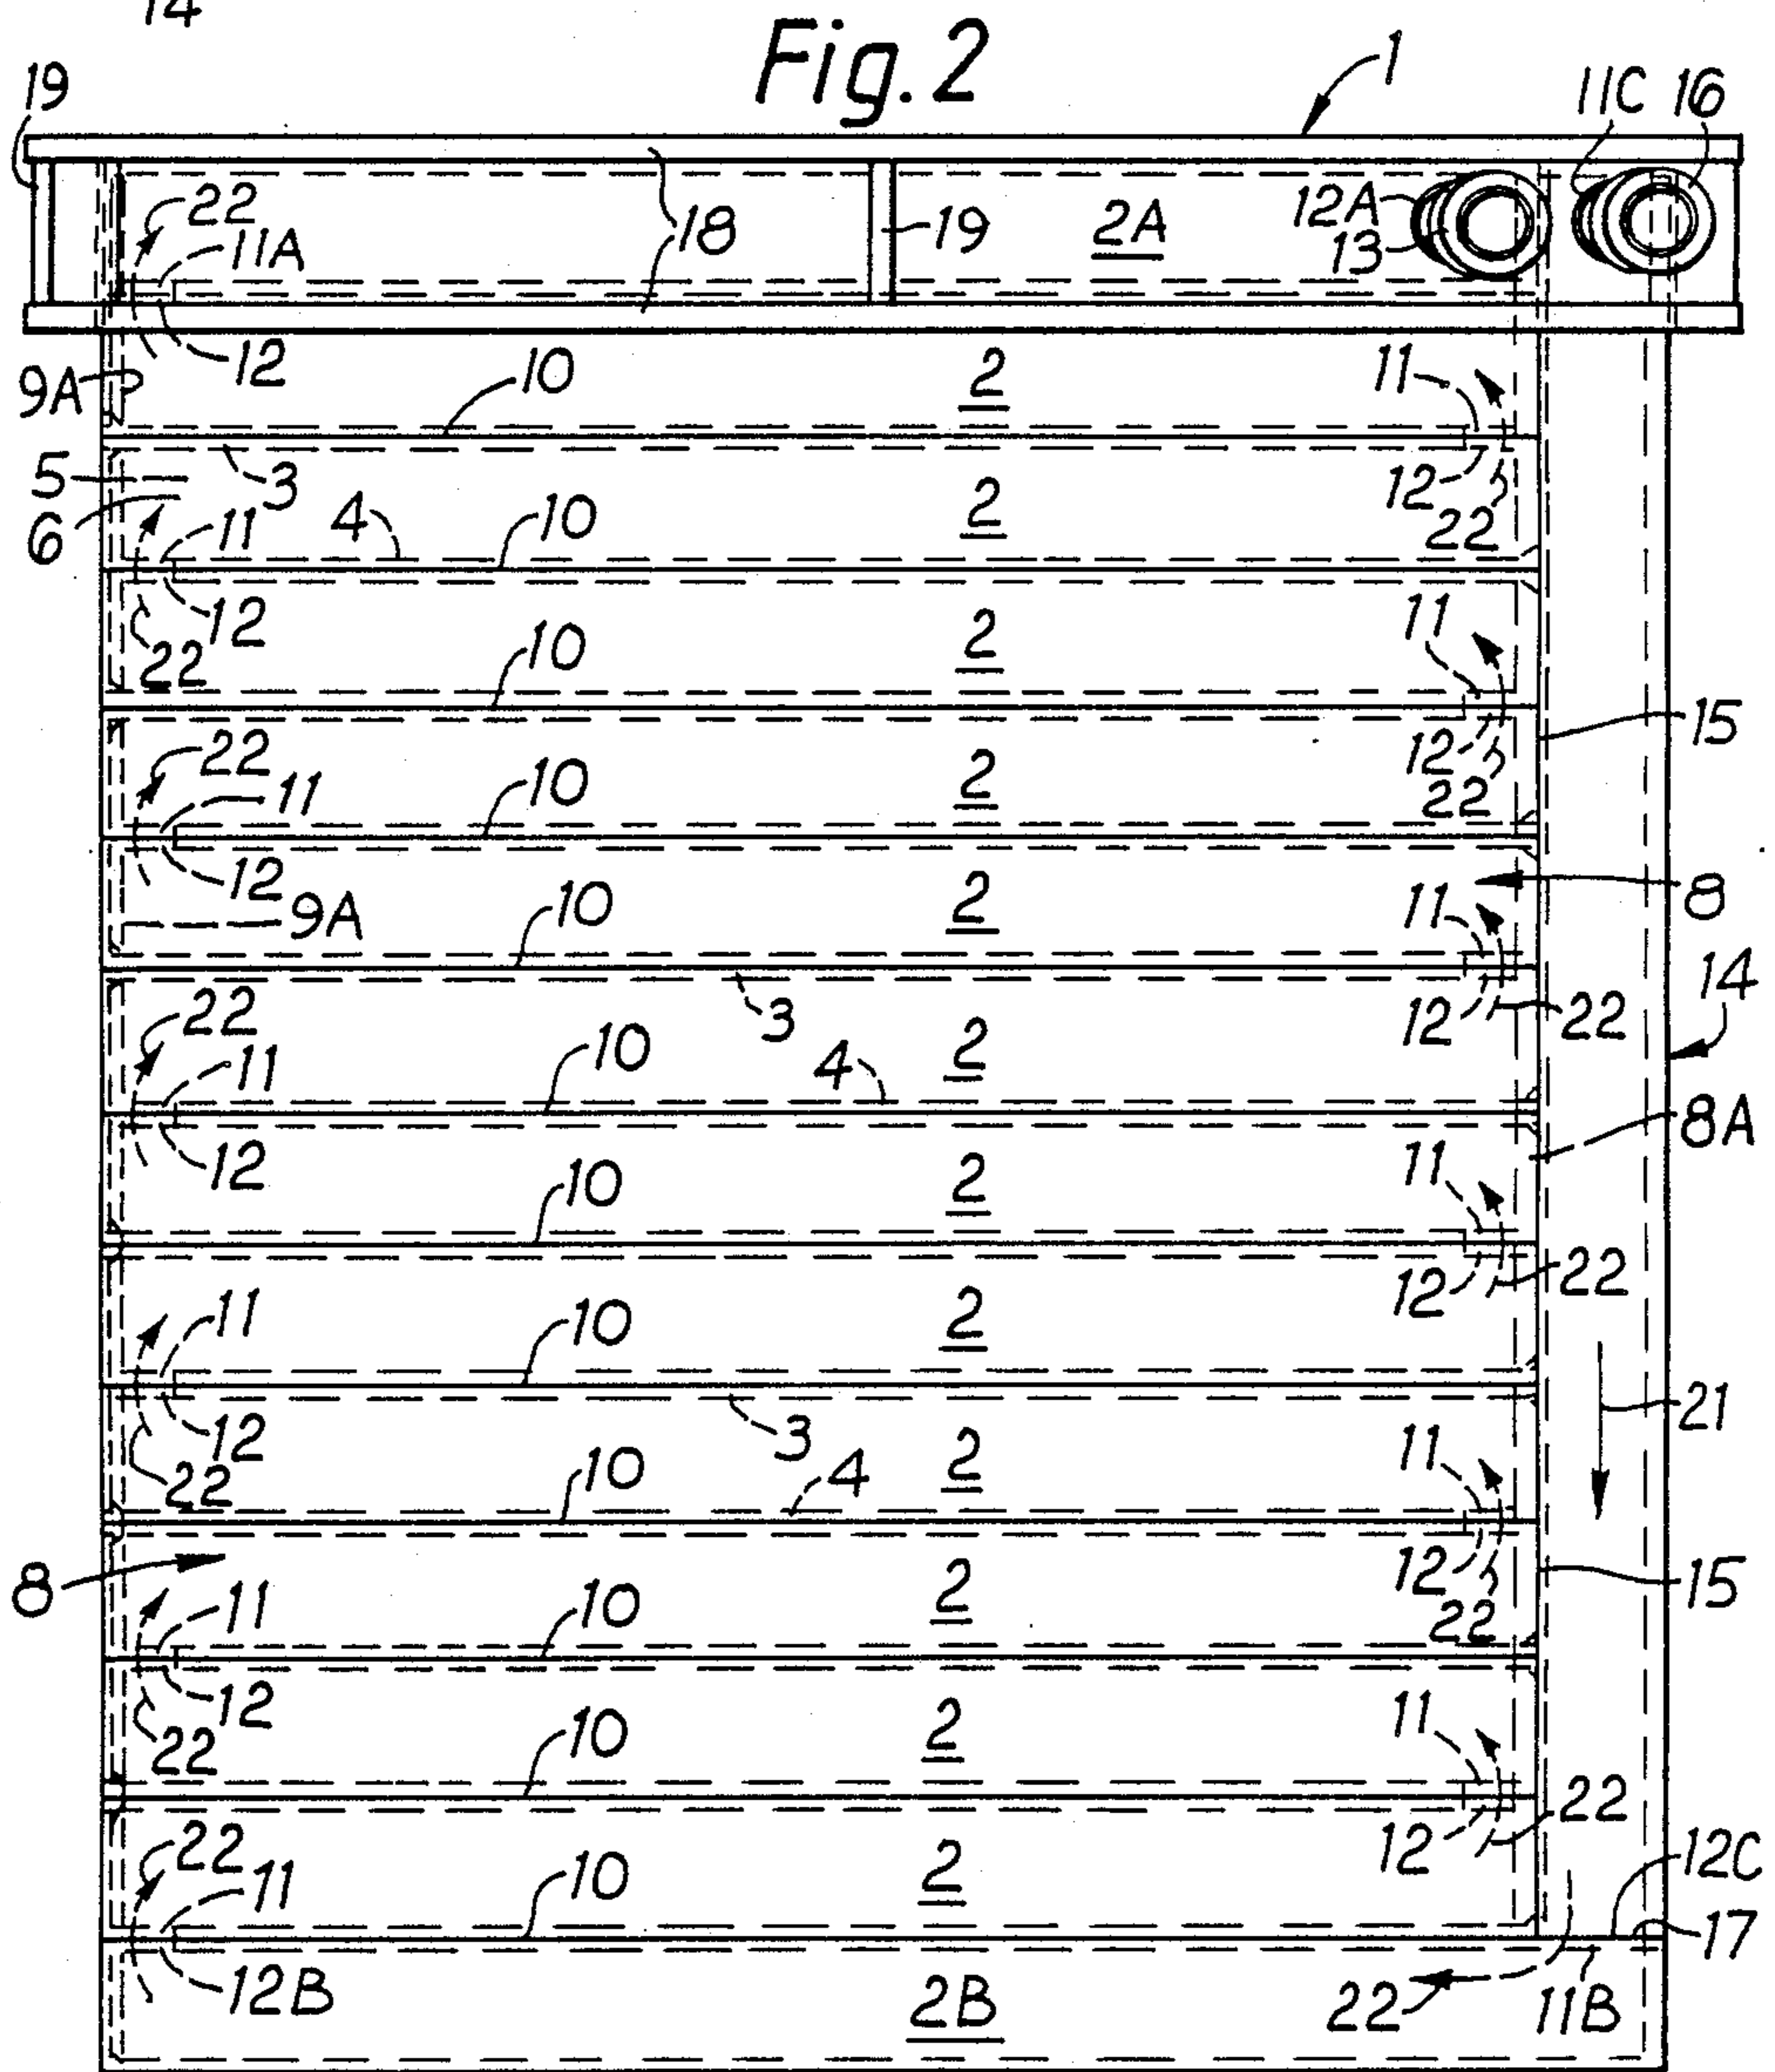 14
Fig. 2
1
19
11C 16
22
11A
18
19
2A
12A
13
12
9A
10
2
11
5
3
12
6
11
4
10
2
22
12
22
10
2
11
15
22
11
10
2
12
22
12
9A
10
2
11
8
14
22
3
12
22
11
10
2
4
8A
12
10
2
11
12
22
11
10
2
12
3
21
22
10
2
4
11
8
12
22
15
11
10
2
12
22
10
2
11
22
12
22
11
10
2
12C
17
12B
2B
22
11B